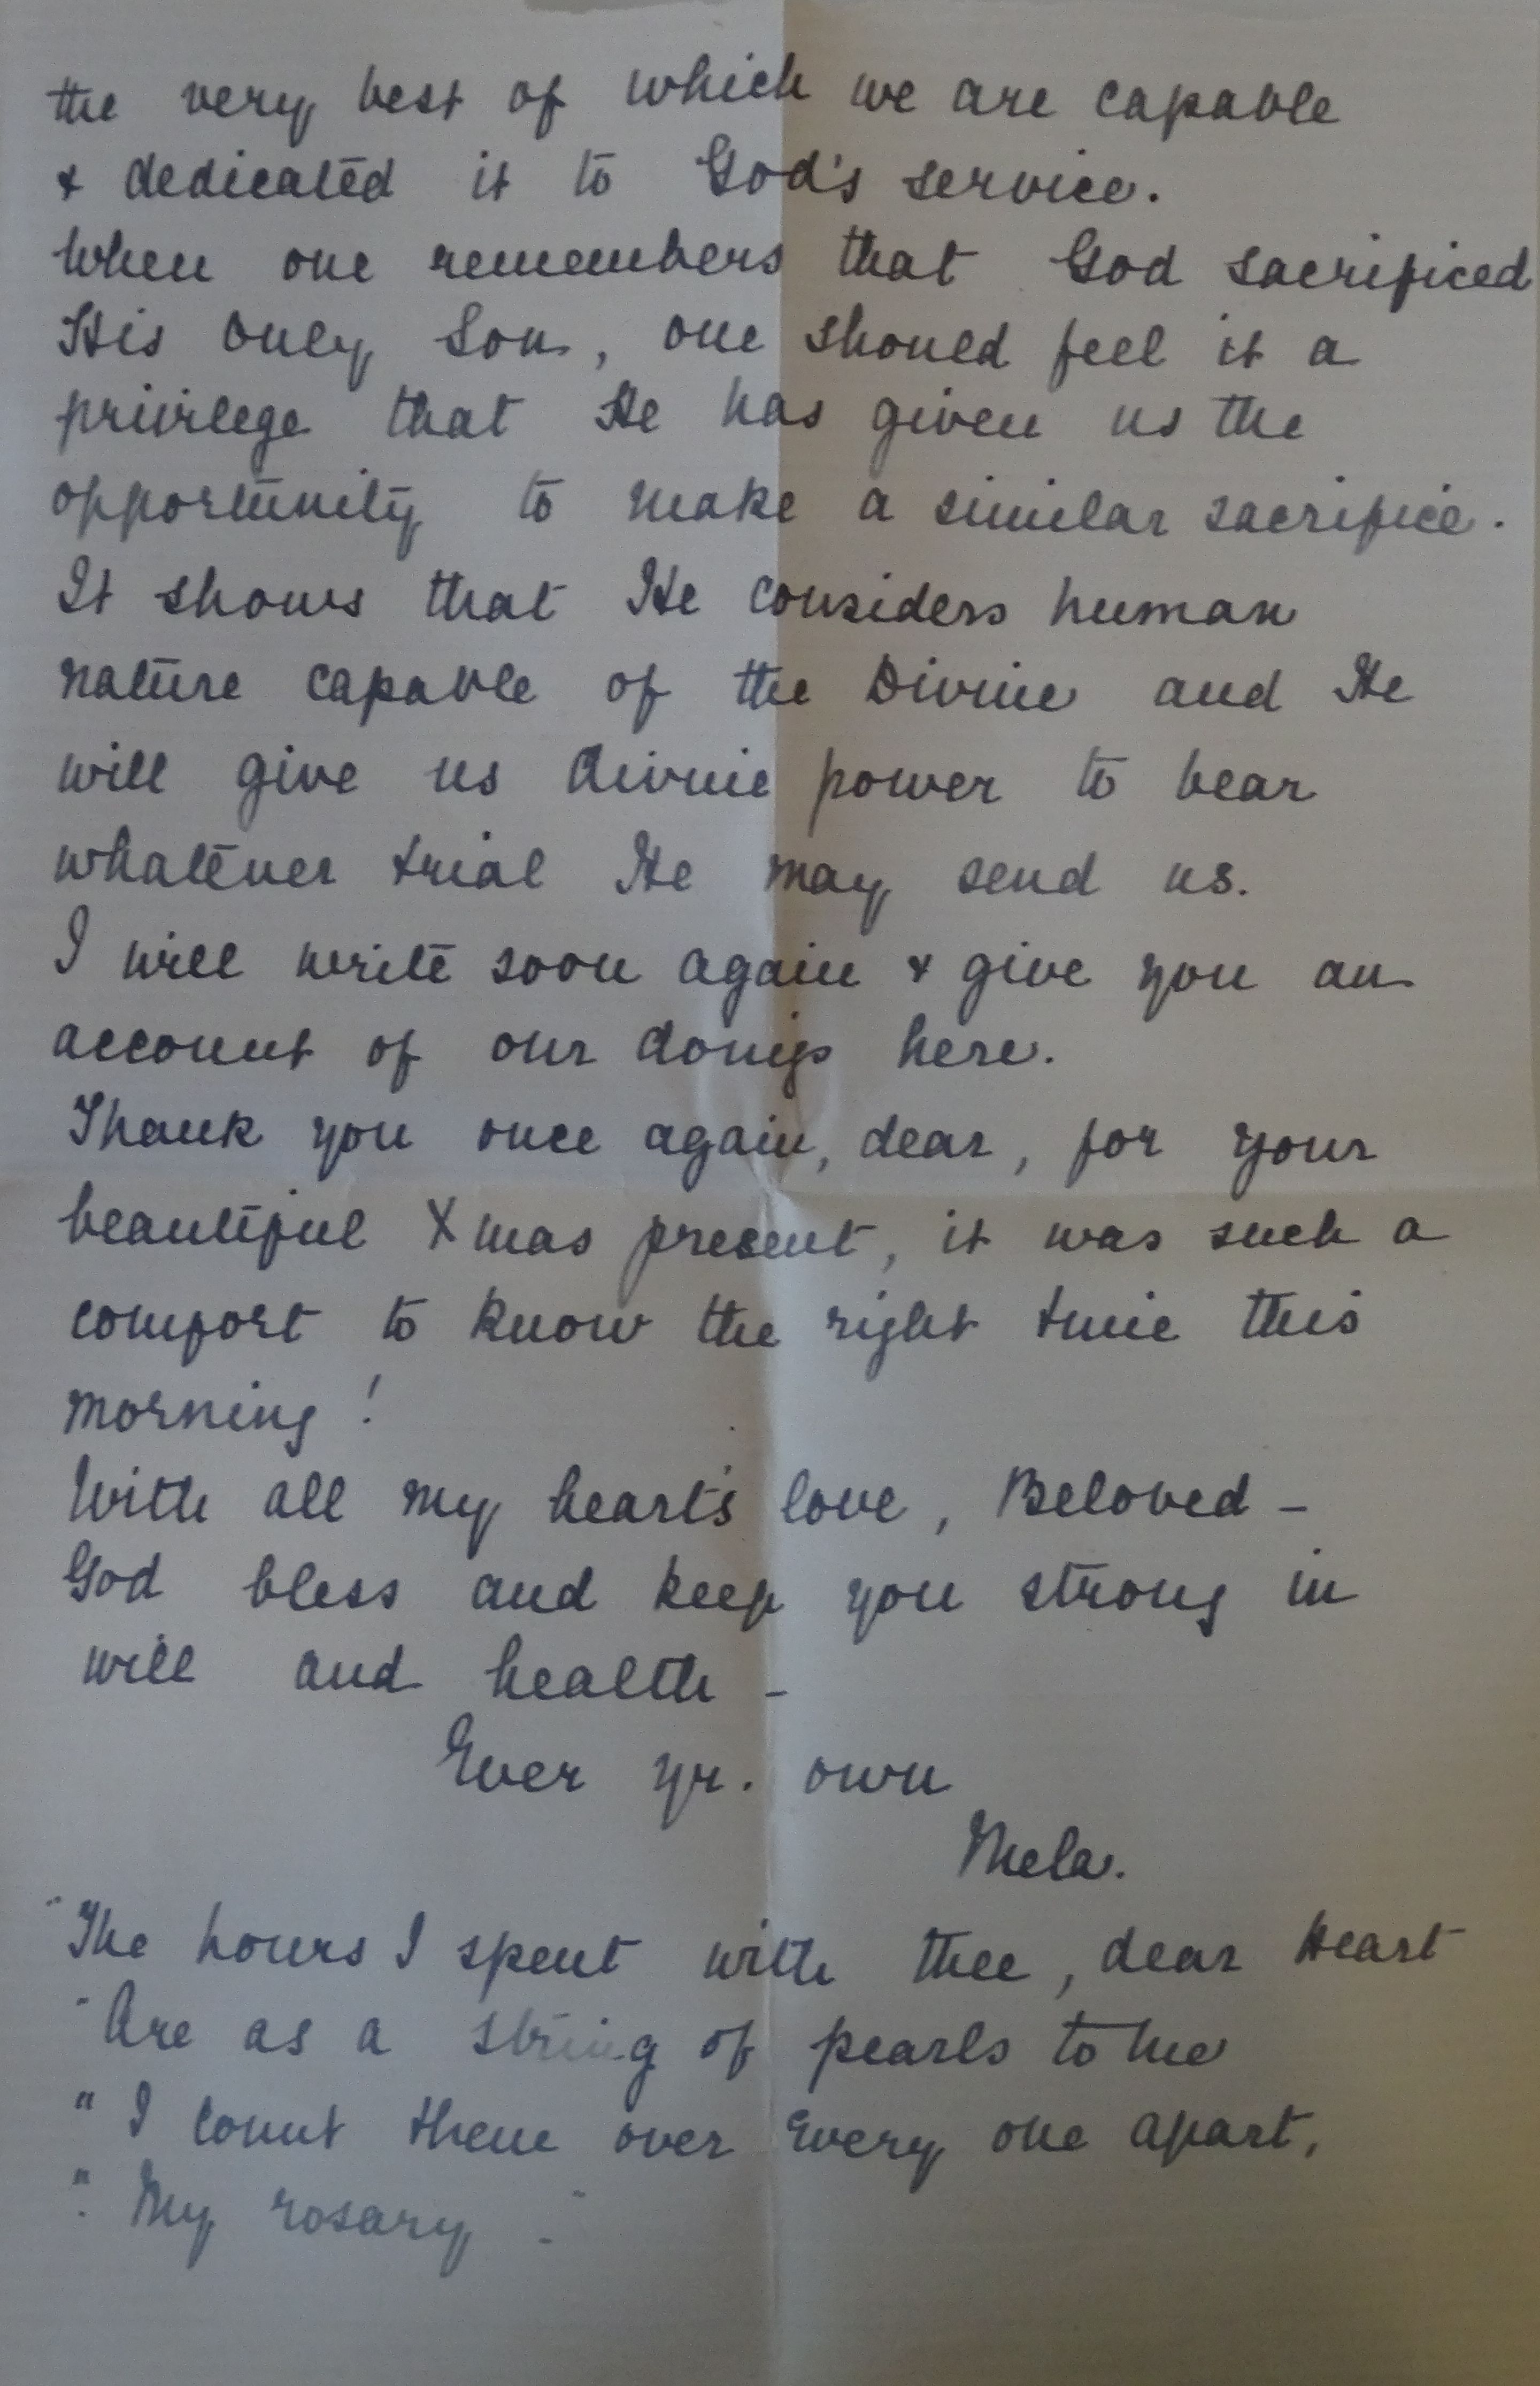 the very best of which we are capable
& dedicated it to God's service.
When one remembers that God sacrificed
His only Son, one should feel it a
privilege that He has given us the
opportunity to make a similar sacrifice.
It shows that He considers human
nature capable of the Divine and He
will give us divine power to bear
whatever trial He may send us.
I will write soon again & give you an
account of our doings here.
Thank you once again, dear, for your
beautiful Xmas present, it was such a
comfort to know the right time this
morning!
With all my heart's love, Beloved -
God bless and keep you strong in
will and health -
Ever yr. own
Mela.
"The hours I spent with thee, dear Heart
"Are as a string of pearls to me
"I count them over every one apart,
"My rosary."